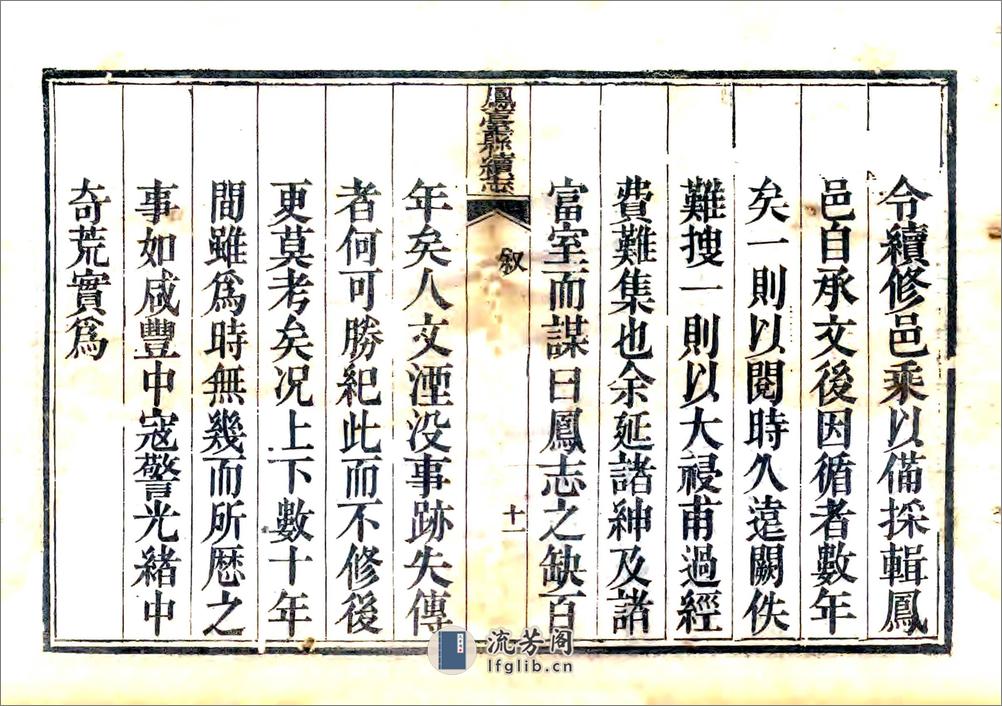 令續修邑乘以備採輯鳳
邑自承文後因循者數年
矣一則以閱時久遠闕佚
難搜一則以大祲甫過經
費難集也余延諸紳及諸
富室而謀曰鳳志之缺百
鳳臺縣續志
叙
十一
年矣人文湮没事跡失傳
者何可勝紀此而不修後
更莫考矣况上下數十年
間雖爲時無幾而所歴之
事如咸豐中寇警光緒中
奇荒實爲
流芳阁
lfglib.cn